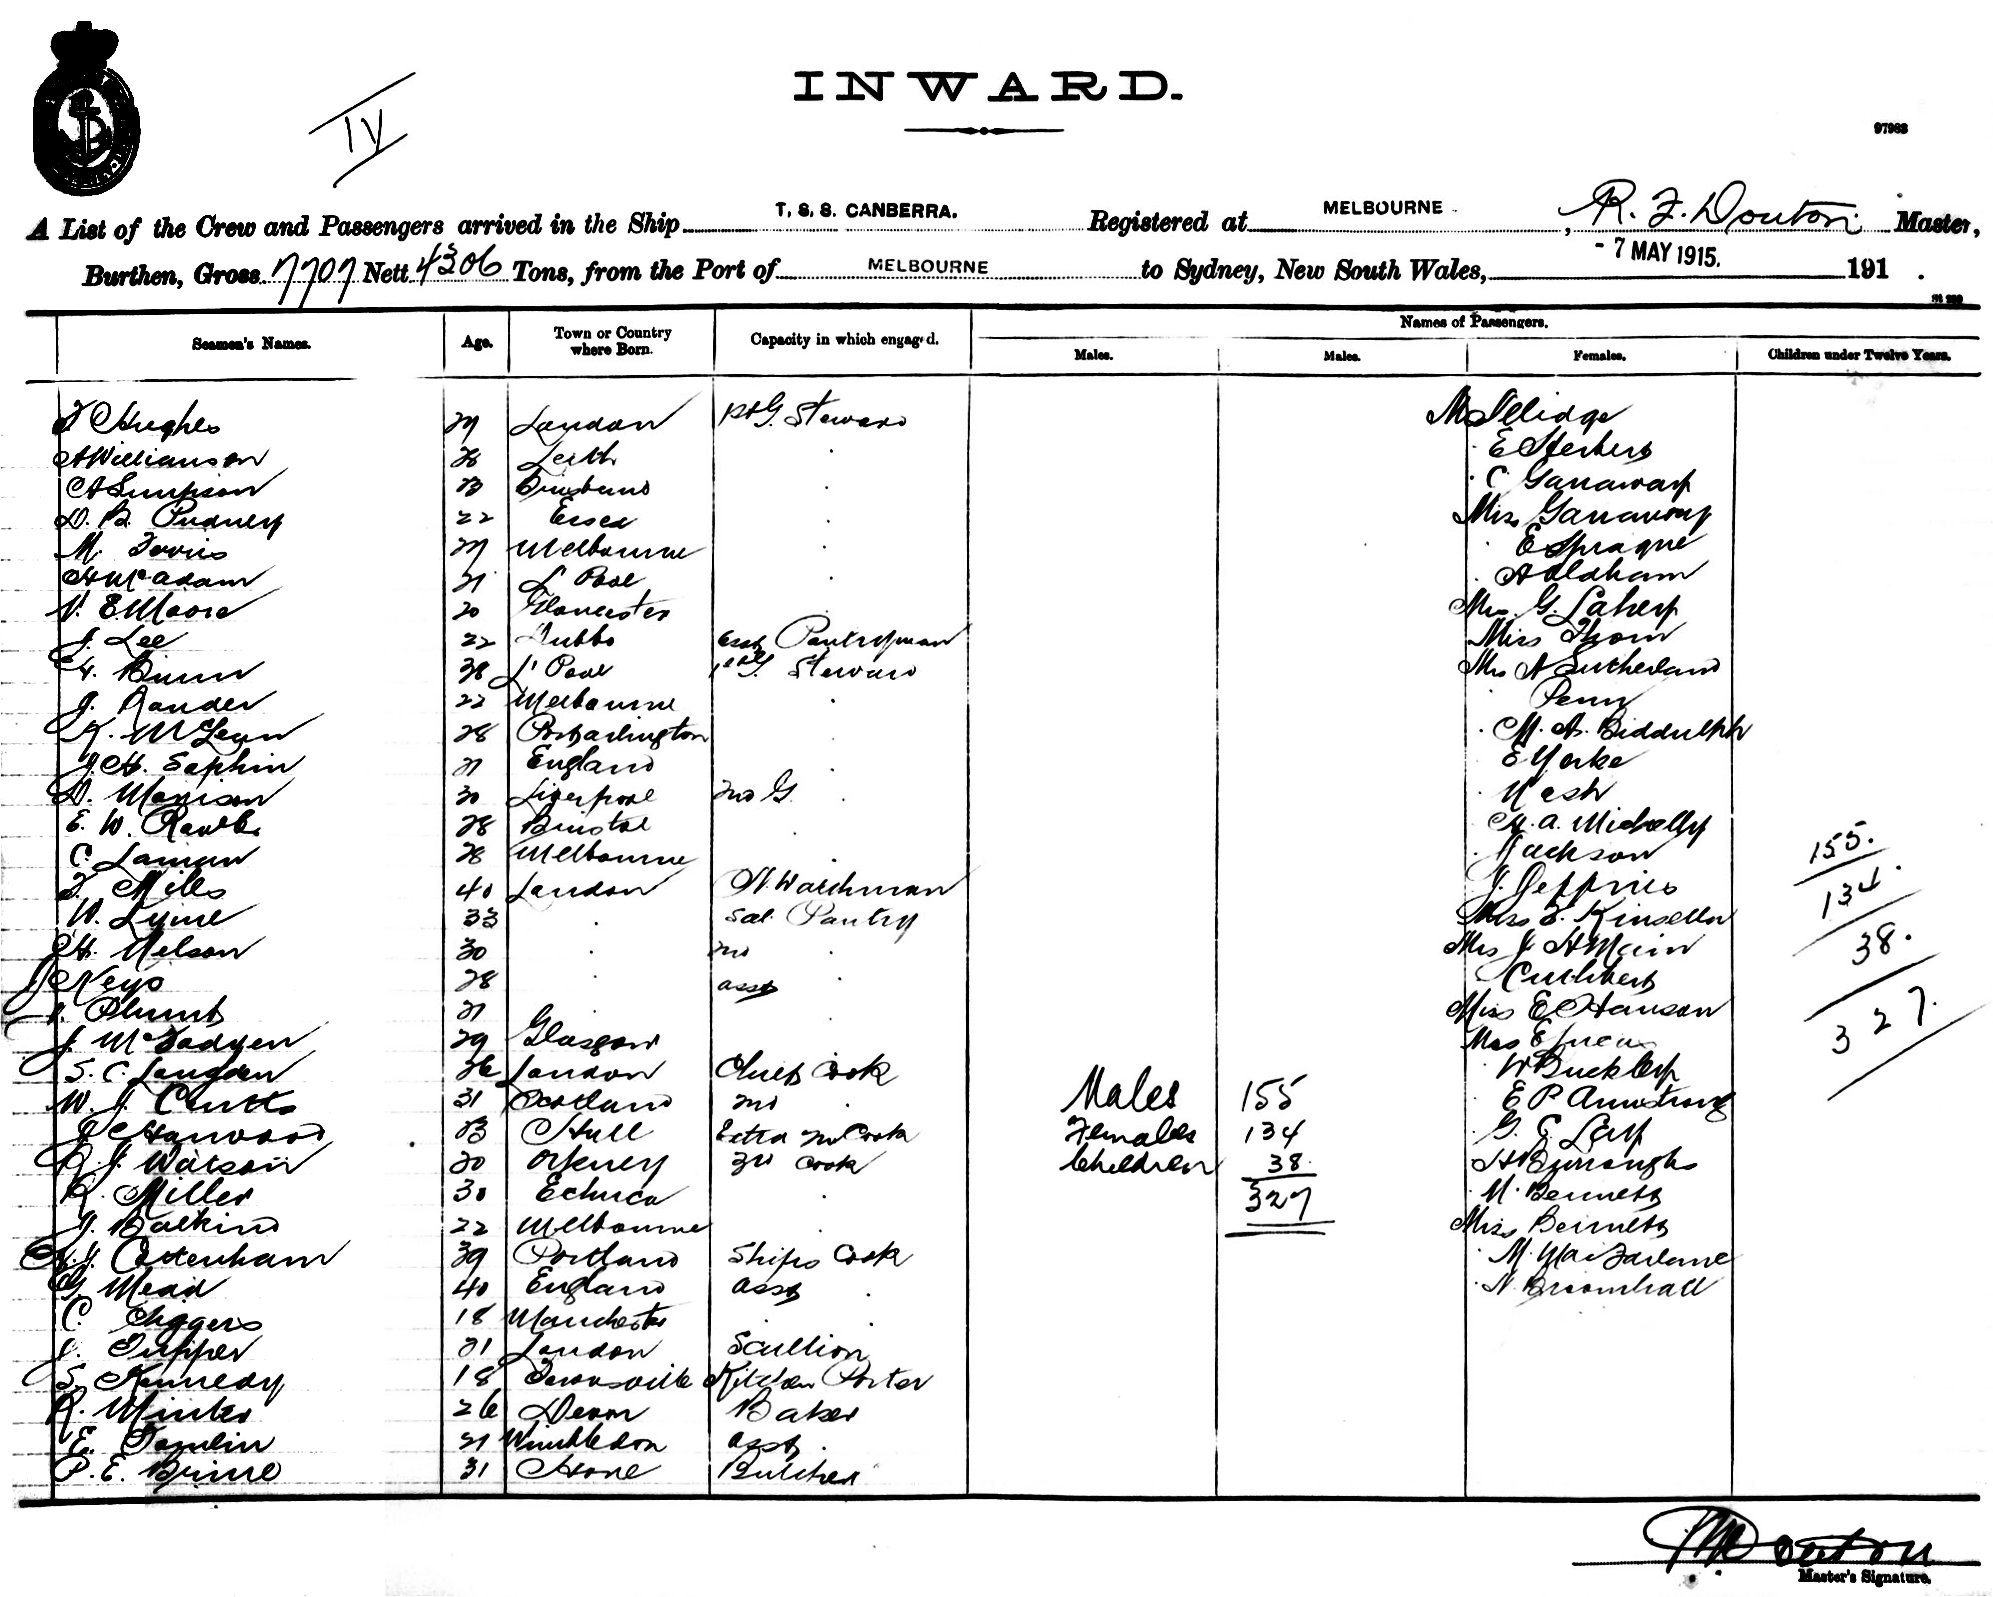 IV
INWARD.
97983
A List of the Crew and Passengers arrived in the Ship T. S. S. CANBERRA. Registered at MELBOURNE, R. F. Douton Master,
Burthen, Gross 7707 Nett 4306 Tons, from the Port of MELBOURNE to Sydney, New South Wales, - 7 MAY 1915. 191 .
Seamen's Names. Age. Town or Country where Born. Capacity in which engaged. Names of Passengers.
Males. Males. Females. Children under Twelve Years.
Hughes London Steward
A Williamson Leith E Herbert
A Simpson Brisbane C Garraway
D. B. Pudney 22 Essex Miss Garraway
M. Melbourne E Sprague
H McAdam 21 L'Pool A Oldham
V. E. Moore 20 Gloucester Mrs G. Lahey
J. Lee 22 Dubbo Asst Pantryman Miss Thom
Binns 38 L'Pool 1st G. Steward Mrs A Sutherland
J. 22 Melbourne Penn
K. McLean 28 Portarlington M. A. Biddulph
J. H. Saphin 21 England E Yorke
D. Morrison 30 Liverpool 2nd G Nash
E. W. 28 Bristol
C. Laman 28 Melbourne Jackson 155.
F. Mills 40 London N. Watchman J. Jeffries 134.
W. Lyme 33 Sal. Pantry Miss F. Kinsella
H. Nelson 30 2nd Mrs J. H Main 38.
J Keys 28 asst Cuthbert
Blunt 21 Miss E Hanson
J. McFadyen 29 Glasgow Mrs E 327.
S. C. Langdon 36 London Chief Cook W Buckley
W. J. 31 Scotland 2nd Males 155 E P Armstrong
Harwood Hull Extra 2nd Cook Females 134 G. E Lay
R. J. Watson 20 Orkney 3rd Cook Children 38. H Burroughs
R. Miller 30 Echuca 327 M. Bennett
J. Balkind 22 Melbourne Miss Bennett
A. J. Cottenham 39 Portland Ships Cook M. MacFarlane
G. Mead 40 England asst N. Broomhall
C. 18 Manchester
J. Tupper 21 London Scullion
S. Kennedy 18 Townsville Kitchen Porter
R. 26 Devon Baker
E. Tomlin 21 Wimbledon asst.
P. E. Brine 31 Hove Butcher
Douton
Master's Signature.